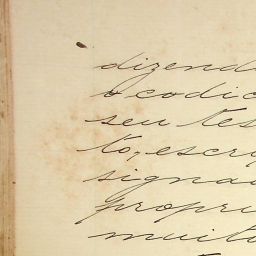 dizend
o codic
seu tes
to, escry
signa
propri
muito